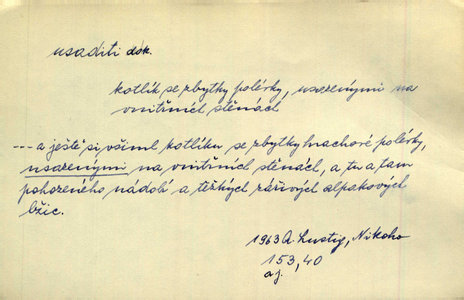 usaditi dok.
kotlík se zbytky polévky, usazenými na
vnitřních stěnách
--- a ještě si všiml kotlíku se zbytky hrachové polévky,
usazenými na vnitřních stěnách, a tu a tam
pohozeného nádobí a těžkých zářivých alpakových
lžic.
1963 A. Lustig, Nikoho
153, 40
a j.